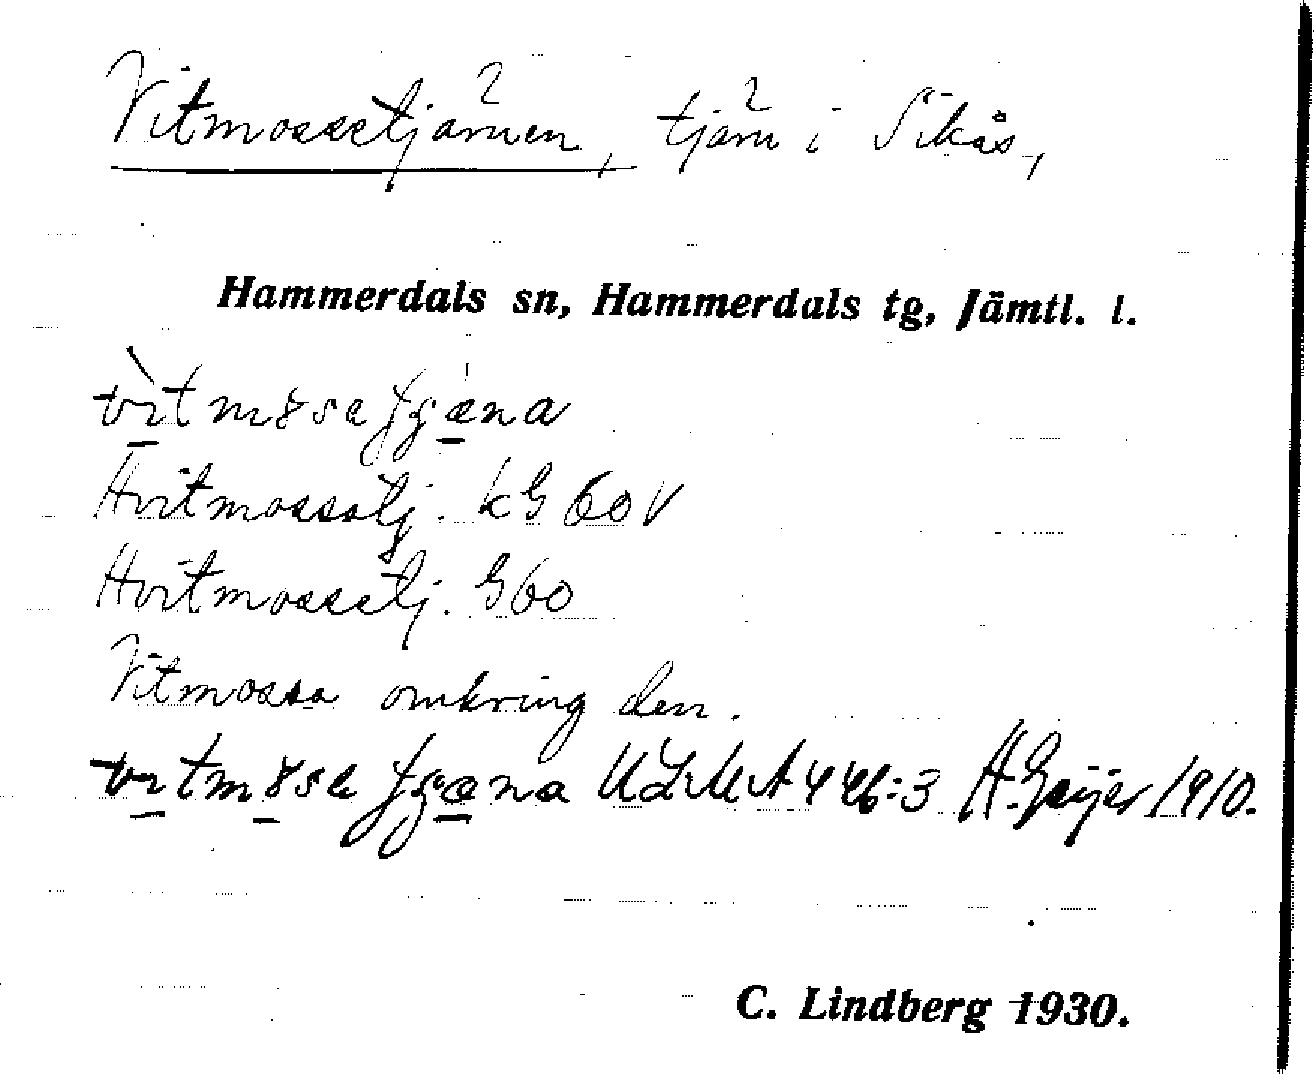 Vitmossetjärnen, tjärn i Sikås,
Hammerdals sn, Hammerdals tg, Jämtl. l.
Hvitmossetj. kG 60 V
Hvitmossetj. G 60
Vitmossa omkring den.
ULMA 446:3 H. Geijer 1910.
C. Lindberg 1930.